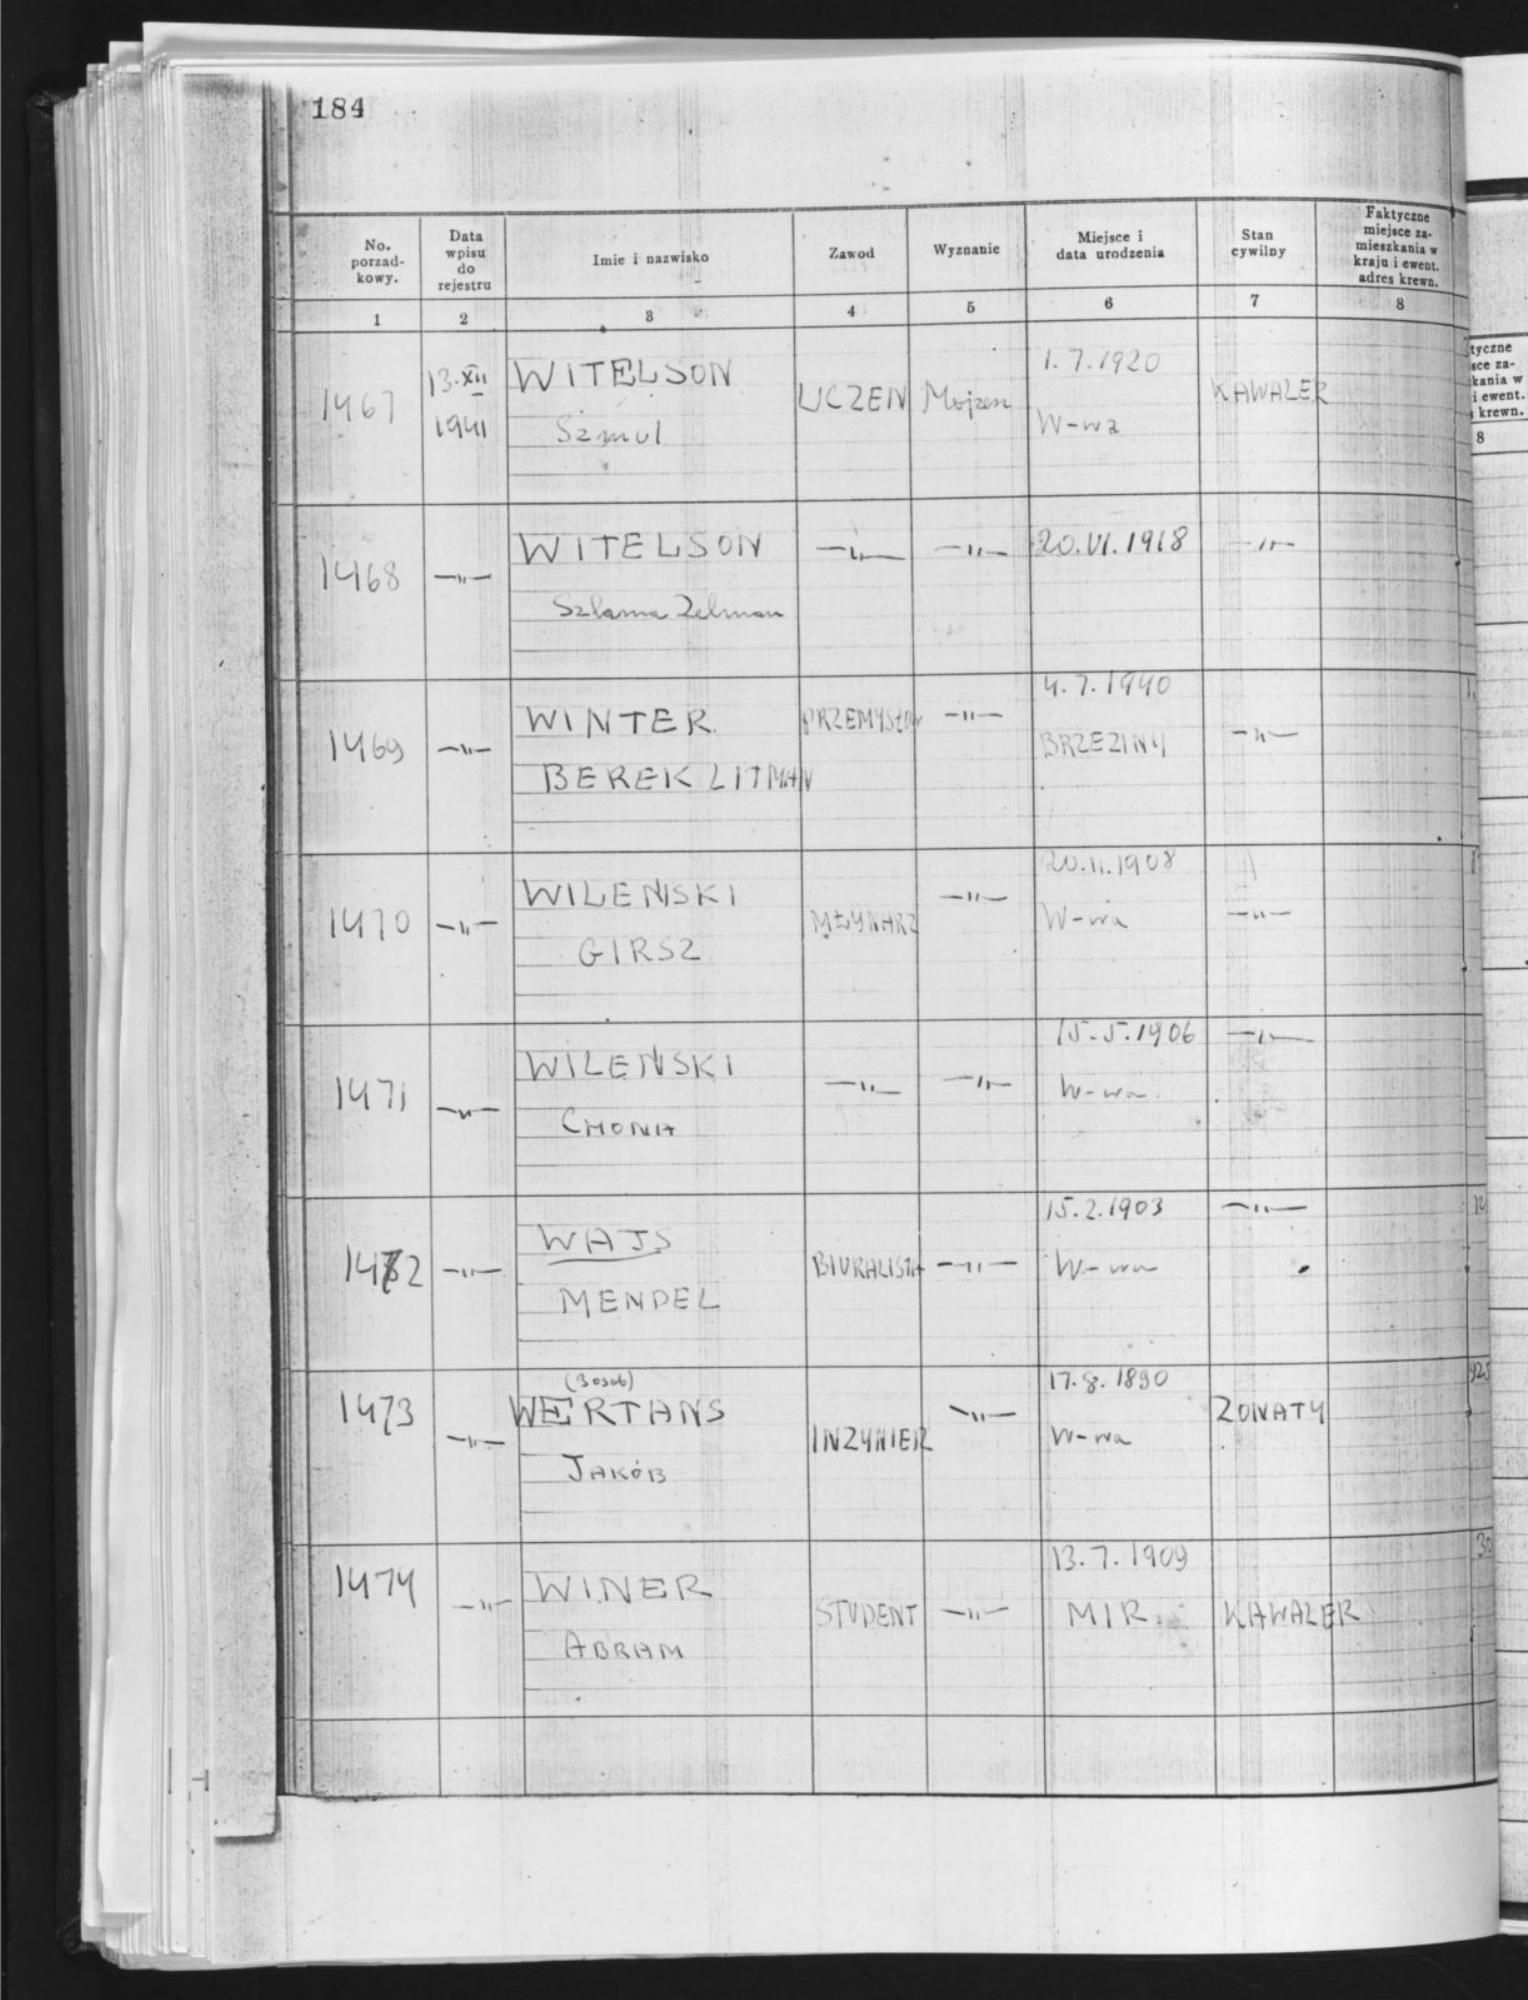 184
No. porzad- kowy.
Data wpisu do rejestru
Imie i nazwisko
Zawod
Wyznanie
Miejsce i data urodzenia
Stan cywilny
Faktyczne miejsce za- mieszkania w kraju i ewent. adres krewn.
1 2 3 4 5 6 7 8
1467 13.XII 1941 WITELSON Szmul UCZEN Mojżesz 1.7.1920 W-wa KAWALER
1468 —"— WITELSON Szlama Zelman —"— —"— 20.VI.1918 —"—
1469 —"— WINTER BEREK LITMAN PRZEMYSŁOW —"— 4.7.1940 BRZEZINY —"—
1470 —"— WILEŃSKI GIRSZ MŁYNARZ —"— 20.11.1908 W-wa —"—
1471 —"— WILEŃSKI CHONA —"— —"— 15.5.1906 W-wa —"—
1472 —"— WAJS MENDEL BIURALISTA —"— 15.2.1903 W-wa —"—
1473 —"— (3 osob) WERTANS JAKÓB INZYNIER —"— 17.8.1890 W-wa ZONATY
1474 —"— WINER ABRAM STUDENT —"— 13.7.1909 MIR KAWALER
tyczne
sce za-
kania w
i ewent.
krewn.
8